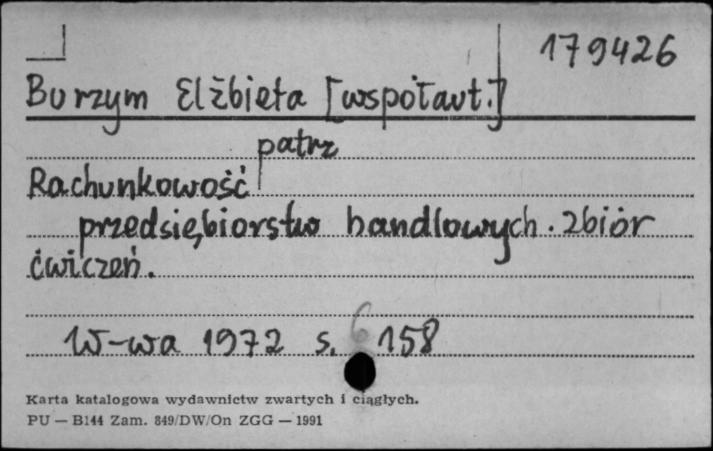 179426
Burzym Elżbieta [współaut.]
patrz
Rachunkowość
przedsiębiorstw handlowych. Zbiór
ćwiczeń.
W-wa 1972 s. 6 158
Karta katalogowa wydawnictw zwartych i ciągłych.
PU — B144 Zam. 849/DW/On ZGG — 1991